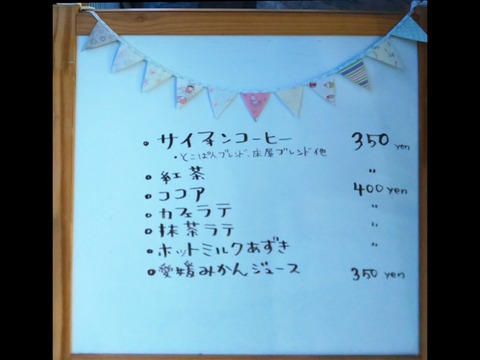 • サイフォンコーヒー 350 yen
・とこぱんブレンド、床屋ブレンド他
• 紅茶 〃
• ココア 400 yen
• カフェラテ 〃
• 抹茶ラテ 〃
• ホットミルクあずき 〃
• 愛媛みかんジュース 350 yen